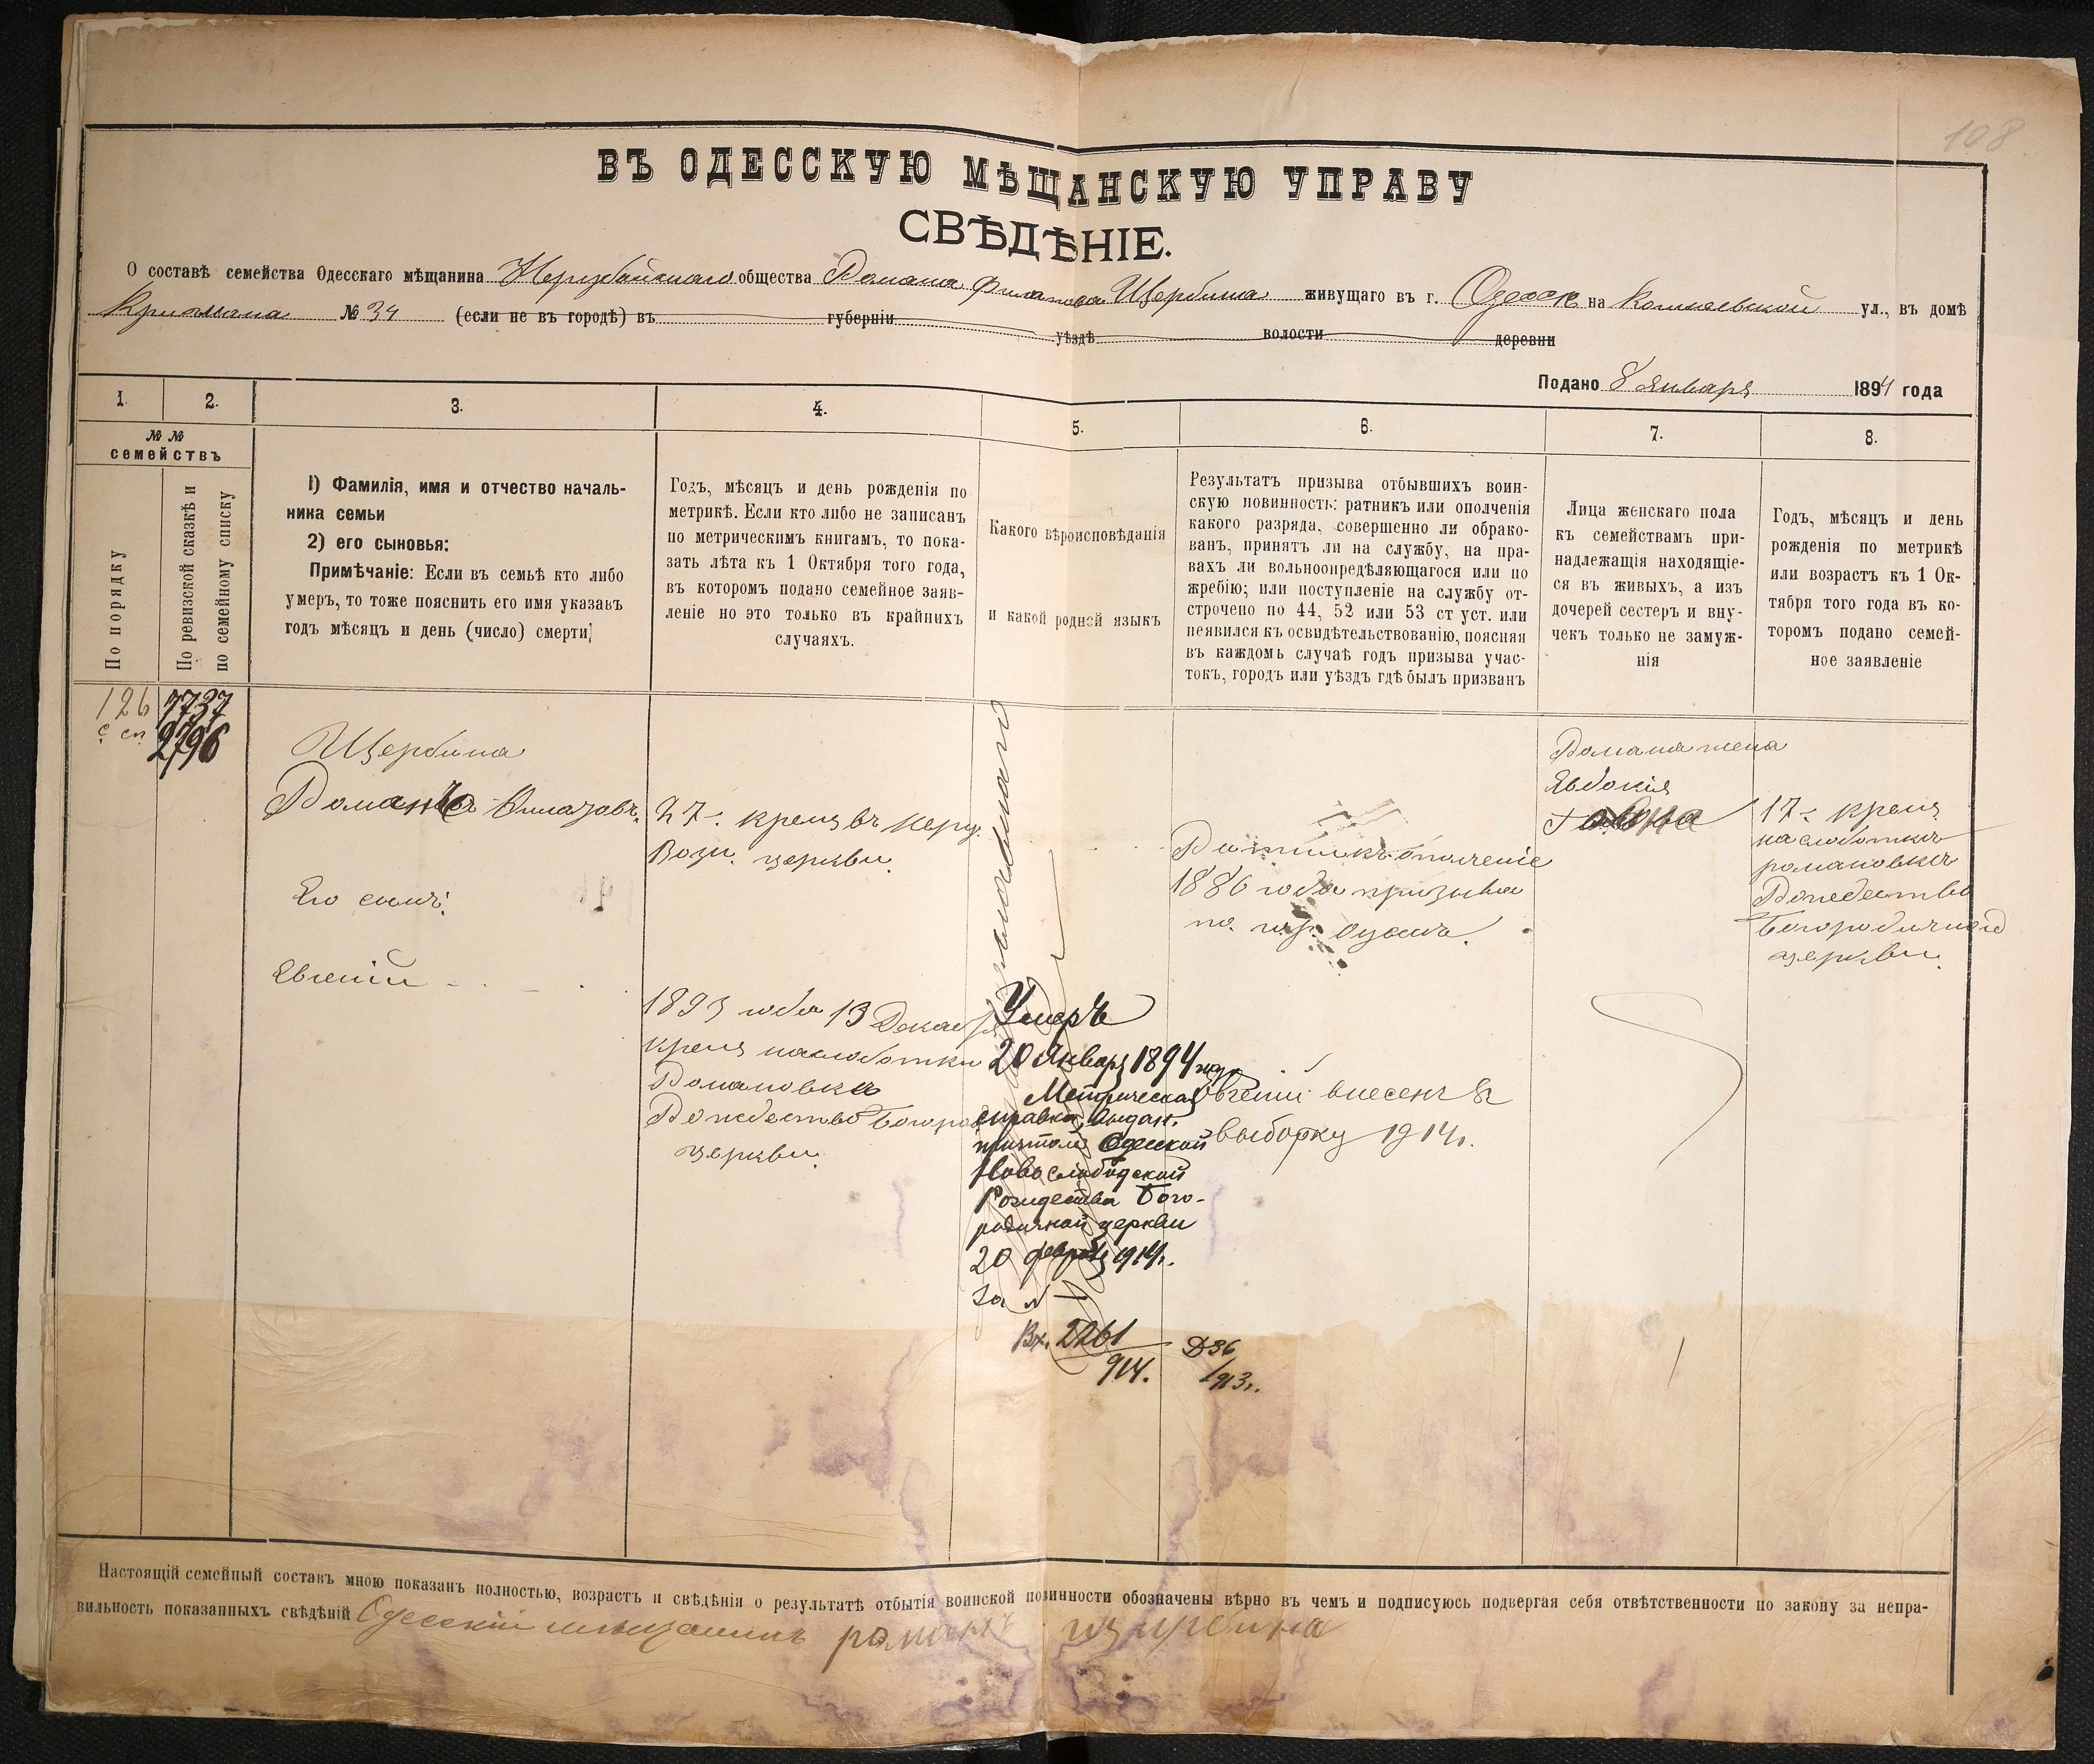 108
ВЪ ОДЕССКУЮ МѢЩАНСКУЮ УПРАВУ
СВѢДѢНІЕ.
О составѣ семейства Одесскаго мѣщанина Нерубайскаго общества Романа Щербина живущаго въ г. Одессѣ на ул., въ домѣ
№ 34 (если не въ городѣ) въ губерніи уѣздѣ волости деревни
Подано 8 Января 1894 года
1. 2. 3. 4. 5. 6. 7. 8.
№ №
семействъ
По порядку
По ревизской сказкѣ и
по семейному списку
1) Фамилія, имя и отчество началь-
ника семьи
2) его сыновья:
Примѣчаніе: Если въ семьѣ кто либо
умеръ, то тоже пояснить его имя указавъ
годъ мѣсяцъ и день (число) смерти;
Годъ, мѣсяцъ и день рожденія по
метрикѣ. Если кто либо не записанъ
по метрическимъ книгамъ, то пока-
зать лѣта къ 1 Октября того года,
въ которомъ подано семейное заяв-
леніе но это только въ крайнихъ
случаяхъ.
Какого вѣроисповѣданія
и какой родной языкъ
Результатъ призыва отбывшихъ воин-
скую повинность: ратникъ или ополченія
какого разряда, совершенно ли обрако-
ванъ, принятъ ли на службу, на пра-
вахъ ли вольноопредѣляющагося или по
жребію; или поступленіе на службу от-
строчено по 44, 52 или 53 ст уст. или
неявился къ освидѣтельствованію, поясняя
въ каждомъ случаѣ годъ призыва учас-
токъ, городъ или уѣздъ гдѣ былъ призванъ
Лица женскаго пола
къ семействамъ при-
надлежащія находящіе-
ся въ живыхъ, а изъ
дочерей сестеръ и вну-
чекъ только не замуж-
нія
Годъ, мѣсяцъ и день
рожденія по метрикѣ
или возрастъ къ 1 Ок-
тября того года въ ко-
торомъ подано семей-
ное заявленіе
126
с. сп.
7737
2796
Щербина
Романъ
27. крещ въ Неруб.
церкви.
Его сынъ:
Евгеній
1893 года 13 Декабря
крещ на слободки
Романовка
Рождество Богород
церкви.
Умеръ
20 Января 1894 года
Метрическая
справка выдан.
причтомъ Одесской
Ново Слободской
Рождества Бого-
родичной церкви
20 февраля 1914г.
за №
Вх. 2261
914.
Д 36
1913г.
Ратникъ ополченіе
1886 года призыва
по гор. Одессѣ.
Евгеній внесенъ въ
выборку 1914г.
Романа жена
Явдокія
17. крещ
на слободкѣ
романовкѣ
Рождество
Богородичной
церкви.
Настоящій семейный составъ мною показанъ полностью, возрастъ и свѣдѣнія о результатѣ отбытія воинской повинности обозначены вѣрно въ чемъ и подписуюсь подвергая себя отвѣтственности по закону за непра-
вильность показанныхъ свѣдѣній Одесскій мѣщанинъ романъ щирбина